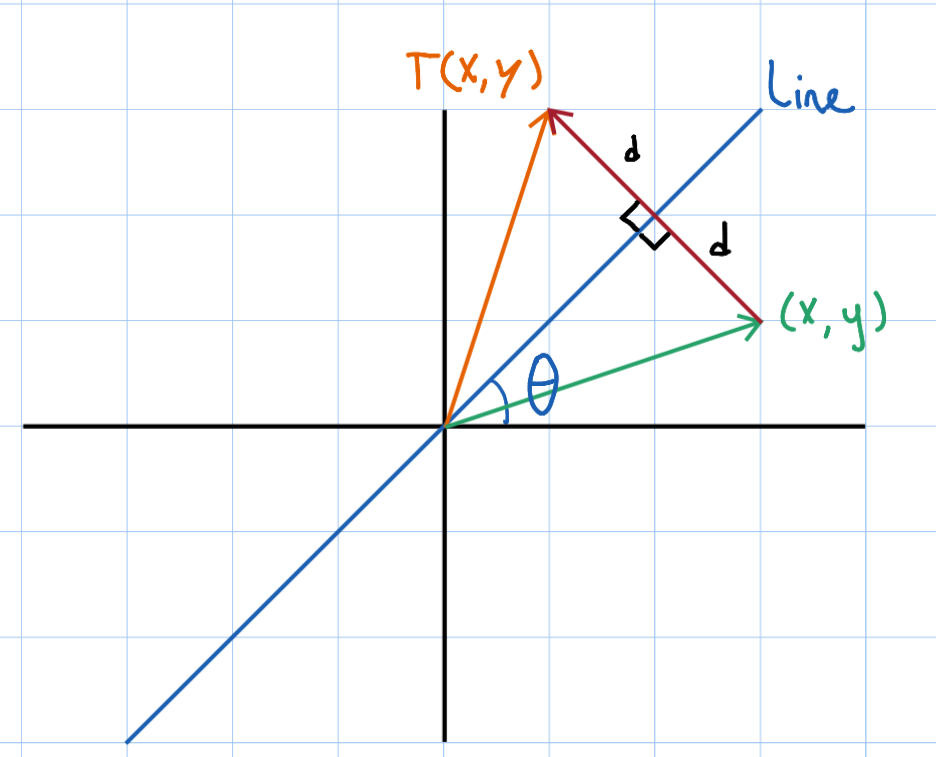 T(x,y)
Line
d
d
(x,y)
θ